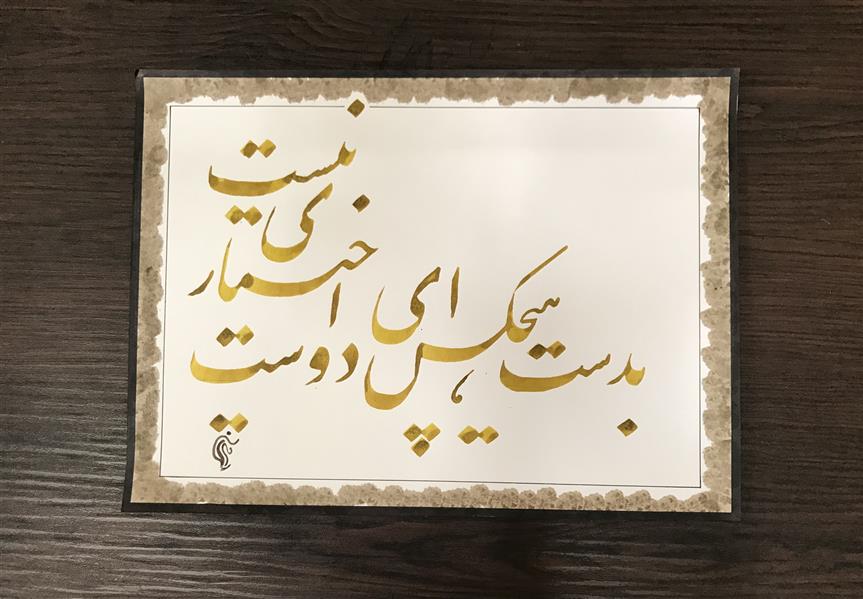 بدست هیچکس ای دوست
اختیاری
نیست